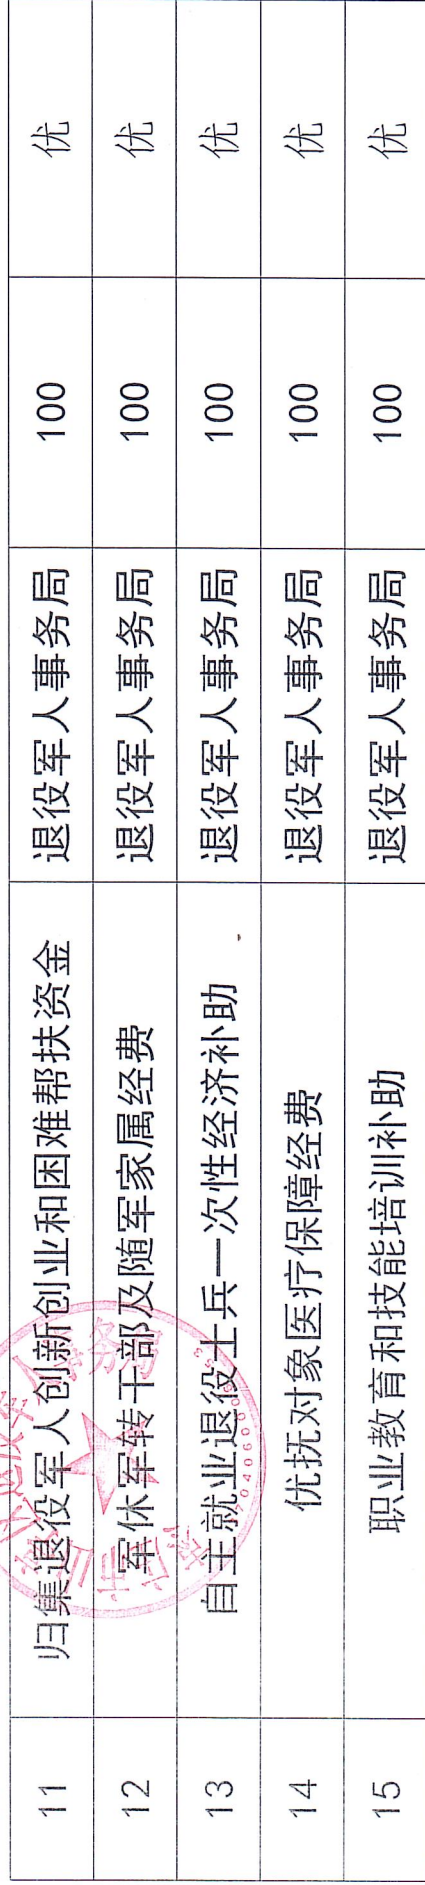 11 归集退役军人创新创业和困难帮扶资金 退役军人事务局 100 优
12 军休军转干部及随军家属经费 退役军人事务局 100 优
13 自主就业退役士兵一次性经济补助 退役军人事务局 100 优
14 优抚对象医疗保障经费 退役军人事务局 100 优
15 职业教育和技能培训补助 退役军人事务局 100 优